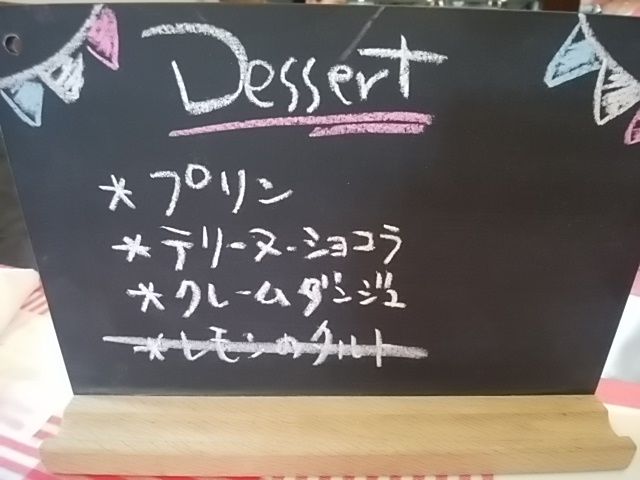 Dessert
* プリン
* テリーヌ・ショコラ
* クレームダンジュ
* レモンのタルト